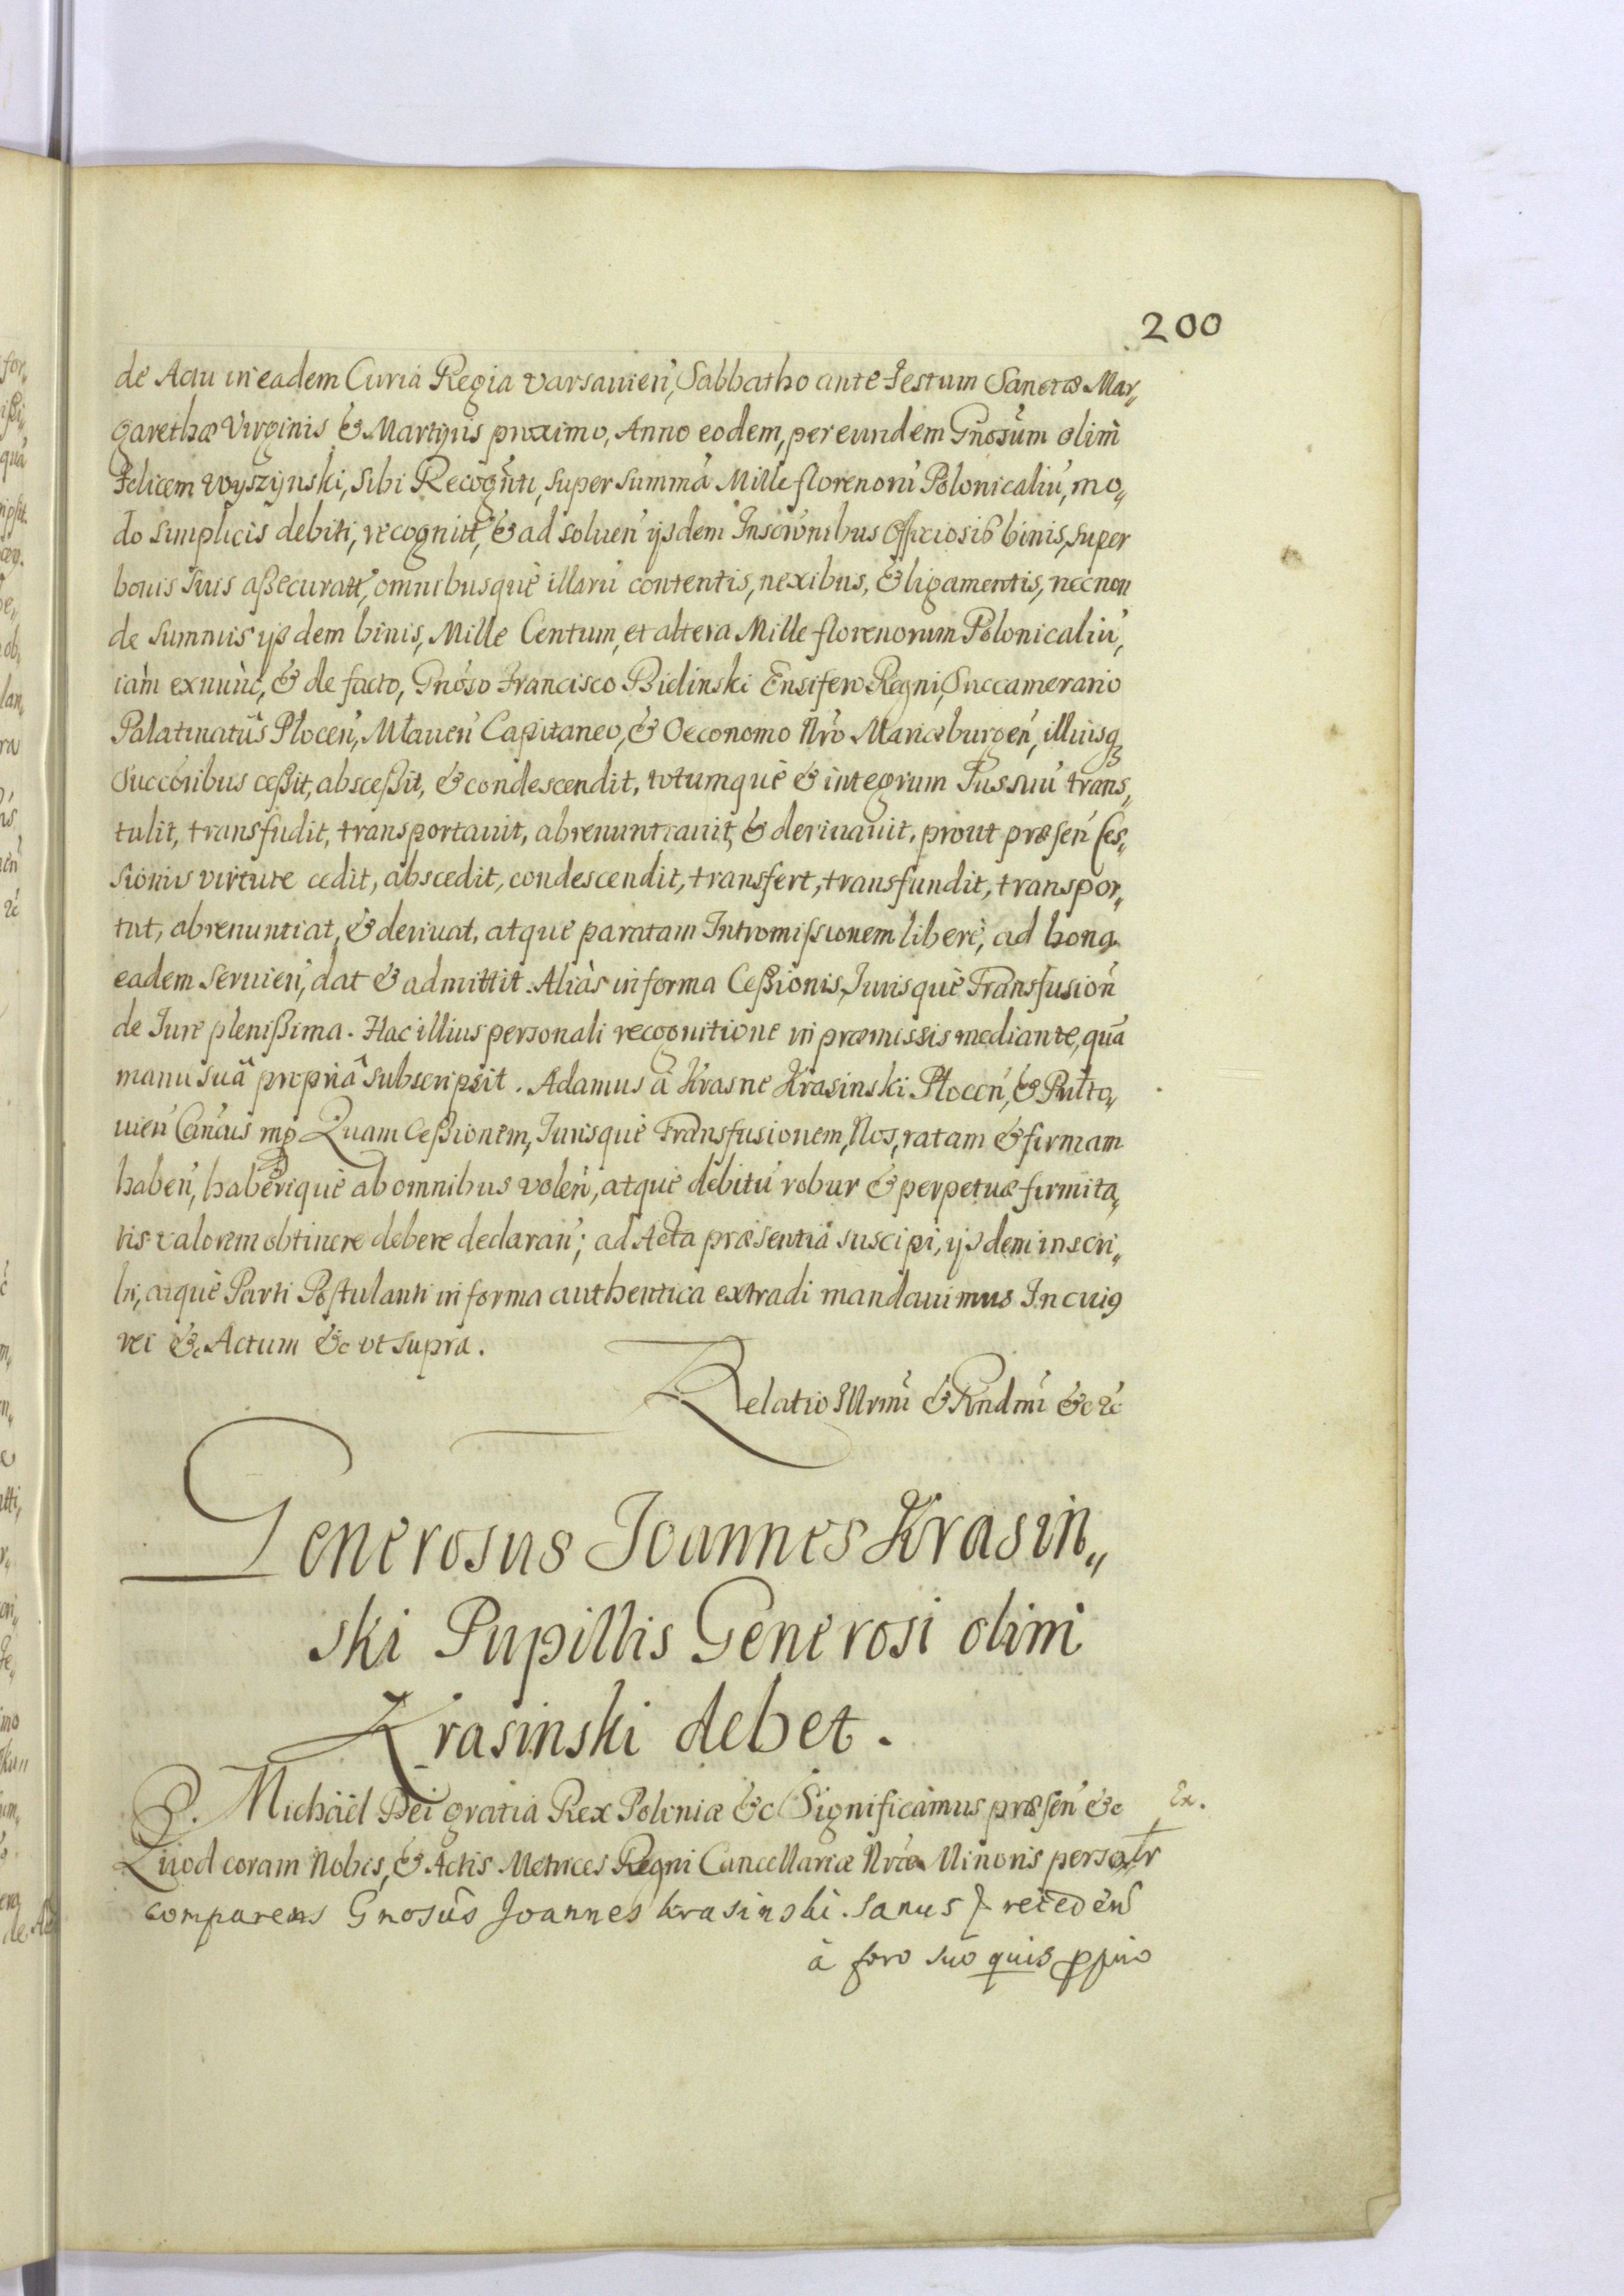 200
de Actu in eadem Curia Regia Varsauien̄, Sabbatho ante Festum Sanctæ Mar„
garethæ Virginis & Martyris proximo, Anno eodem, per eundem Gnōsum olim
Felicem Wyszynski, sibi Recogn̄ti, super summā Mille florenorū Polonicaliū, mo„
do simplicis debiti, recognitt, & ad soluen̄ ijsdem Inscrōnibus Officiosis binis, super
bonis suis assecuratt, omnibusquè illarū contentis, nexibus, & ligamentis, necnon
de summis ijsdem binis, Mille Centum, et altera Mille florenorum Polonicaliū,
iàm exnunc, & de facto, Gnōso Francisco Bielinski Ensifero Regni, Succamerario
Palatinatûs Płocen̄, Mławen̄ Capitaneo, & Oeconomo Nr̄o Mariæburgen̄, illiusq₃
Succōribus cessit, abscessit, & condescendit, totumquè & integrum Jus suū trans„
tulit, transfudit, transportauit, abrenuntiauit, & deriuauit, prout præsen̄ Ces„
sionis virtute cedit, abscedit, condescendit, transfert, transfundit, transpor„
tat, abrenuntiat, & deriuat, atquè paratam Intromissionem liberè, ad bona
eadem seruien̄, dat & admittit. Aliàs in forma Cessionis, Jurisquè Transfusion̄
de Jure plenissima. Hac illius personali recognitione in præmissis mediante, quā
manu suâ propriâ subscripsit. Adamus à Krasne Krasinski Płocen̄, & Pułto„
uien̄ Can̄cus mp Quam Cessionem, Jurisquè Transfusionem, Nos, ratam & firmam
haben̄, haberiquè ab omnibus volen̄, atquè debitū robur & perpetuæ firmita„
tis valorem obtinere debere declaran̄; ad Acta præsentia suscipi, ijsdem inscri„
bi, atquè Parti Postulanti in forma authentica extradi mandauimus In cui9
rei &c Actum &c vt supra.
Relatio Illrmi & Rndmi &c &c
Generosus Joannes Krasin„
ski Pupillis Generosi olim
Krasinski debet.
Michaël Dei gratia Rex Poloniæ &c Significamus præsen̄ &c
Ex.
Quod coram Nobis, & Actis Metrices Regni Cancellariæ Nr̄æ Minoris personlr
comparens Gnosûs Joannes Krasinski. sanus & recedēns
à foro suo quis ppuio